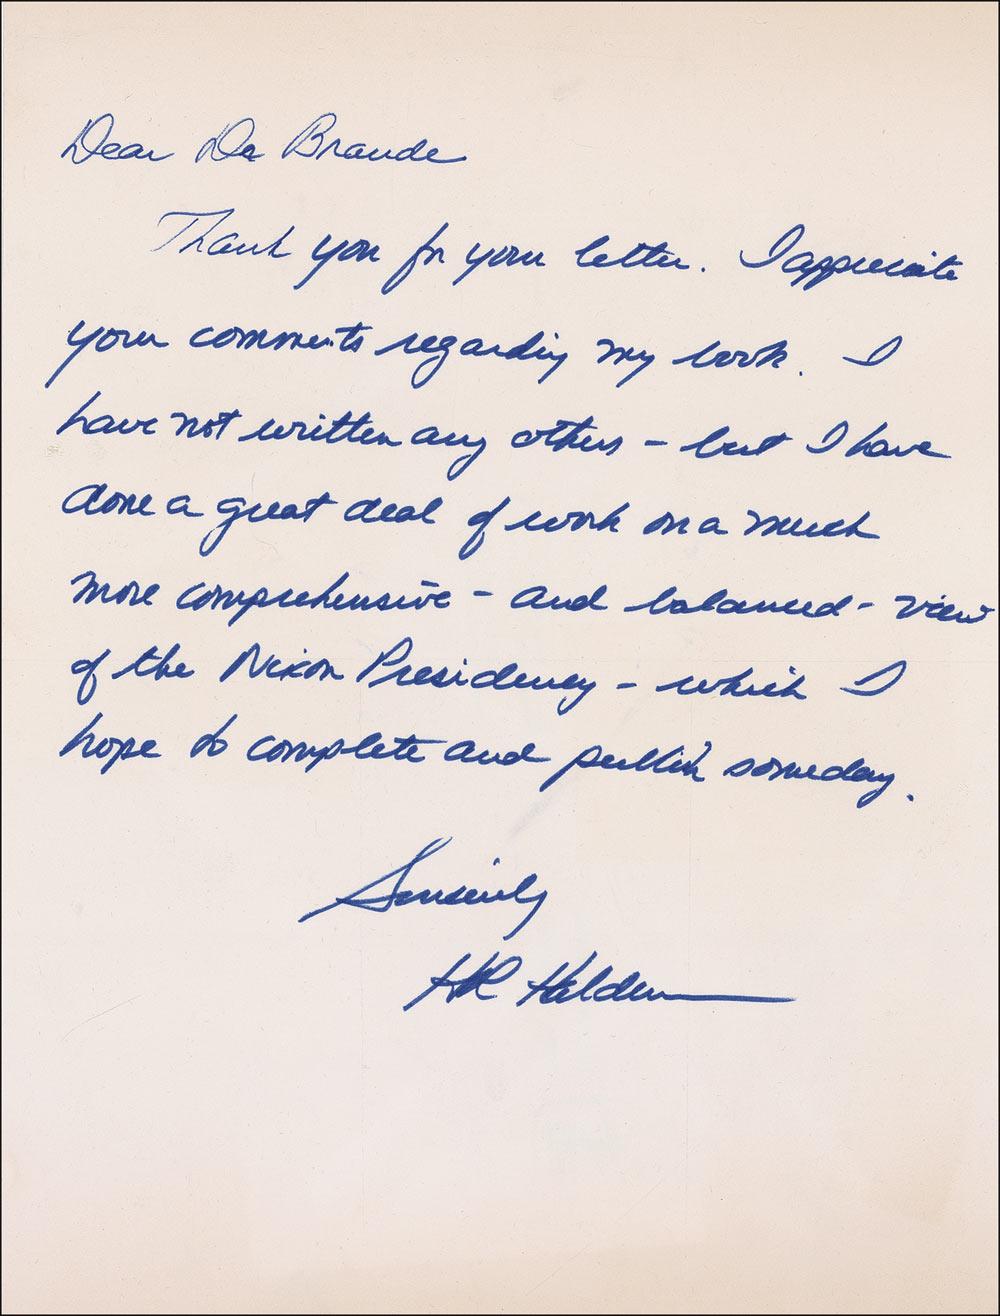 Dear Dr Braude
Thank you for your letter. I appreciate
your comments regarding my book. I
have not written any others - but I have
done a great deal of work on a much
more comprehensive - and balanced - view
of the Nixon Presidency - which I
hope to complete and publish someday.
Sincerely
HR Haldeman